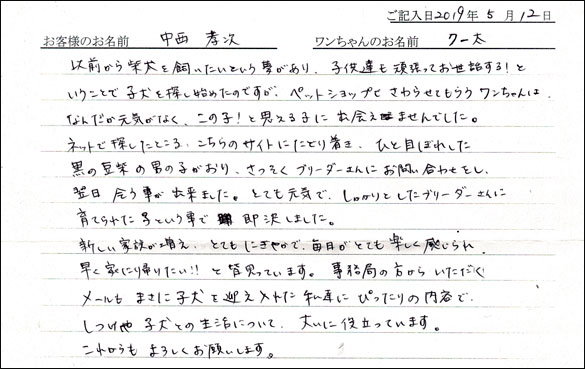 ご記入日2019年 5 月 12日
お客様のお名前 中西 孝次 ワンちゃんのお名前 クー太
以前から柴犬を飼いたいという夢があり、子供達も頑張ってお世話する!と
いうことで子犬を探し始めたのですが、ペットショップでさわらせてもらうワンちゃんは、
なんだか元気がなく、この子!と思える子に出会えませんでした。
ネットで探したところ、こちらのサイトにたどり着き、ひと目ぼれした
黒の豆柴の男の子がおり、さっそくブリーダーさんにお問い合わせをし、
翌日会う事が出来ました。とても元気で、しっかりとしたブリーダーさんに
育てられた子という事で即決しました。
新しい家族が増え、とてもにぎやかで、毎日がとても楽しく感じられ、
早く家に帰りたい!!と皆思っています。事務局の方からいただく
メールも まさに子犬を迎え入れた私達にぴったりの内容で、
しつけや子犬との生活について、大いに役立っています。
これからもよろしくお願いします。